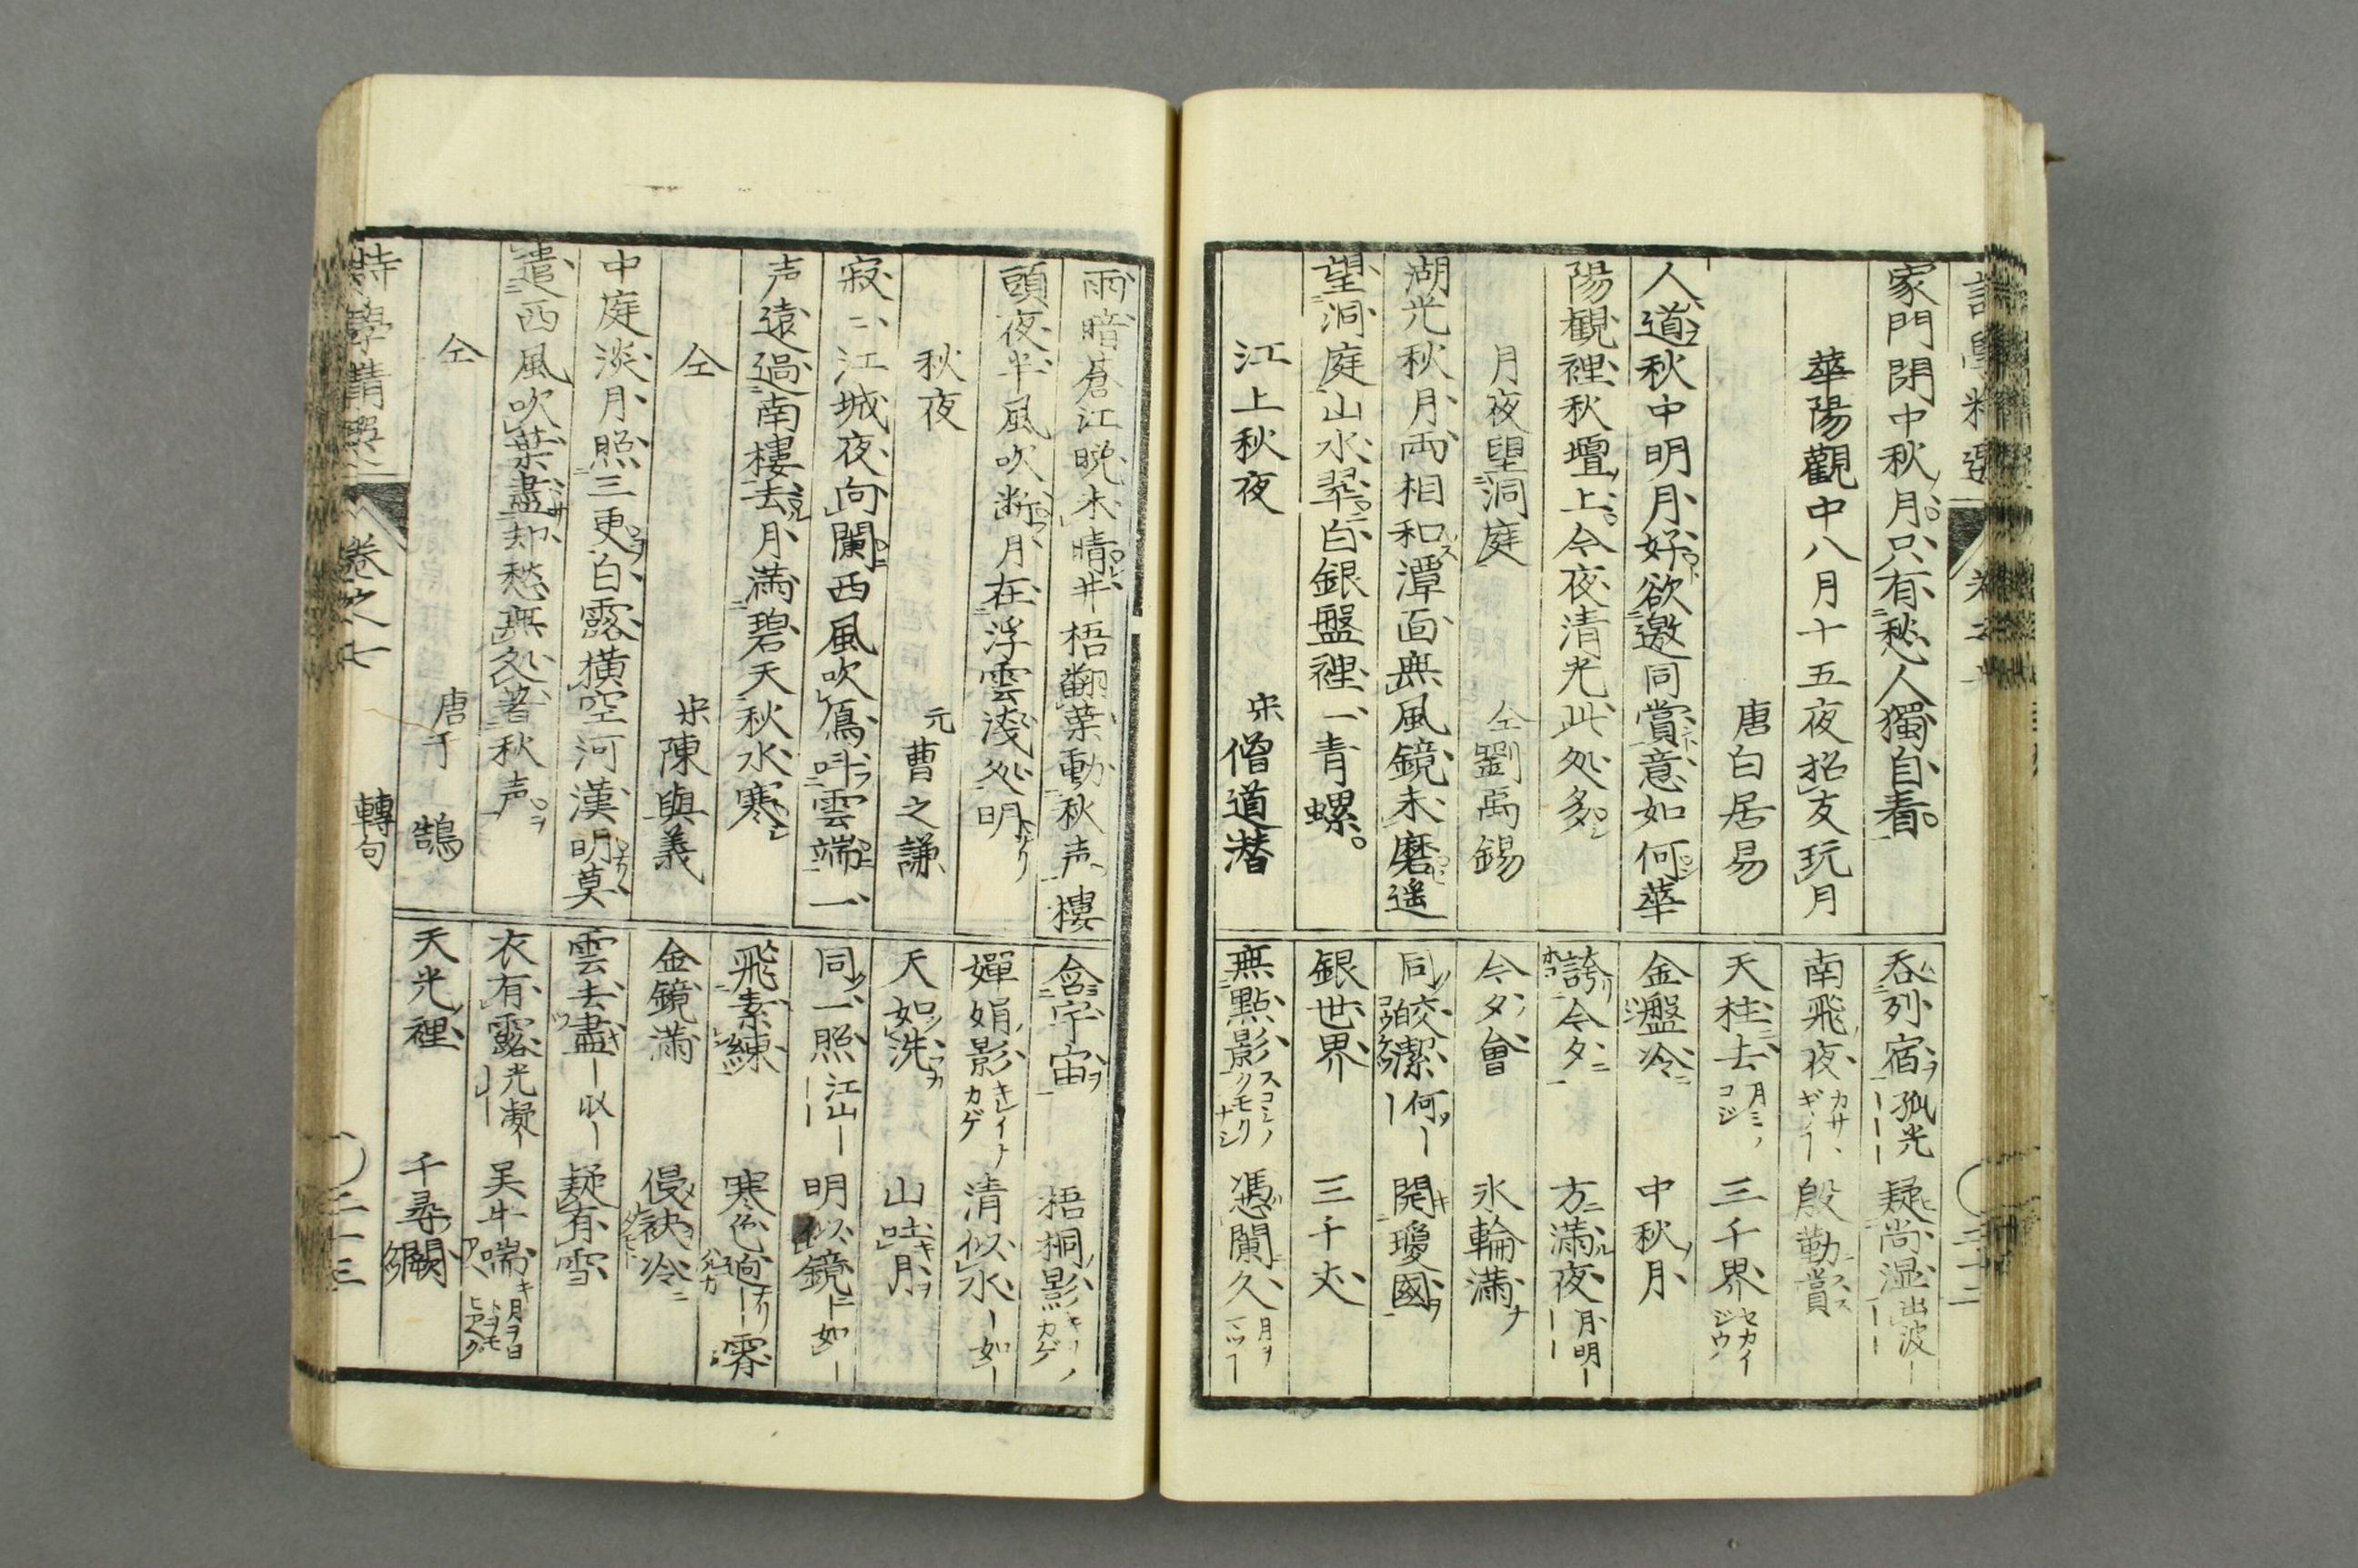 家門閉中秋月只有愁人獨自看
華陽觀中八月十五夜招友玩月
唐白居易
人道秋中明月好欲邀同賞意如何華
陽観裡秋壇上今夜清光此処多
月夜望洞庭 仝劉禹錫
湖光秋月両相和潭面無風鏡未磨遥
望洞庭山水翠白銀盤裡一青螺
江上秋夜 宋僧道潜
呑列宿 孤光 疑尚湿 出波
南飛夜 殷勤賞
天柱去 三千界
金盤冷 中秋月
誇今夕 方満夜 月明
今夕會 氷輪満
同皎潔 何 開瓊國
銀世界 三千丈
無點影 憑闌久
雨暗蒼江晩未晴井梧翻葉動秋声樓
頭夜半風吹断月在浮雲浅処明
秋夜 元曹之謙
寂〻江城夜向闌西風吹鳫叫雲端一
声遠過南樓去月満碧天秋水寒
仝 宋陳與義
中庭淡月照三更白露横空河漢明莫
遣西風吹葉盡却愁無処著秋声
仝 唐于鵠
含宇宙 梧桐影
嬋娟影 清似水 如
天如洗 山吐月
同一照 江山 明似鏡 如
飛素練 寒色迥 霽
金鏡満 侵袂冷
雲去盡 収 疑有雪
衣有露 光凝 呉牛喘
天光裡 千尋闕
卷之七 轉句 二十三